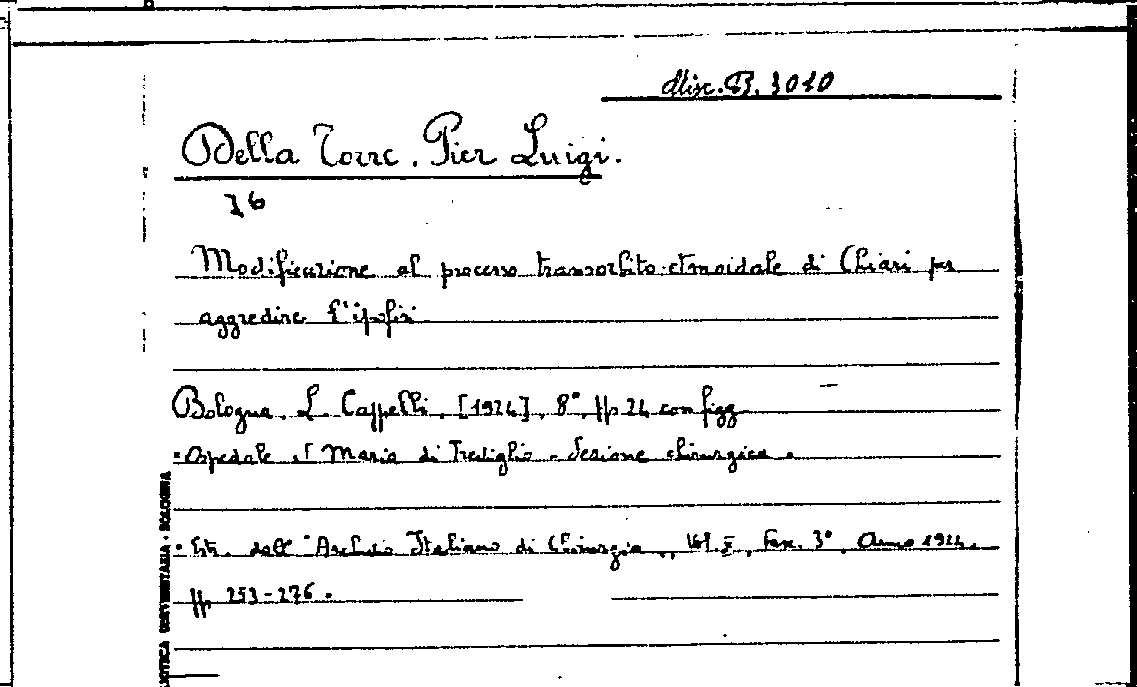 Misc. B. 1010
Della Torre. Pier Luigi.
76
Modificazione al processo transorbito-etmoidale di Chiari per
aggredire l'ipofisi
Bologna. L. Cappelli. [1924]. 8°, pp 24 con figg
"Ospedale S Maria di Treviglio - Sezione chirurgica".
"Estr. dall' "Archivio Italiano di Chirurgia", Vol. X, Fasc. 3°. Anno 1924.
pp 253-276.
BIBLIOTECA UNIVERSITARIA - BOLOGNA